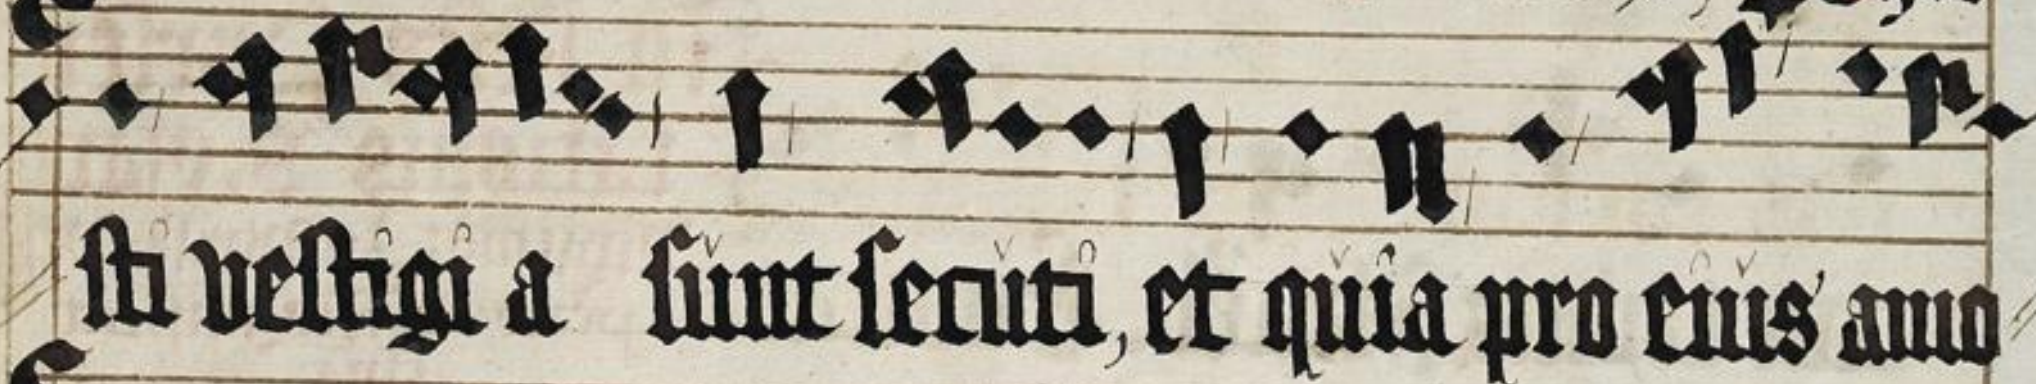 sti vestigi a sunt secuti, et quia pro eius amo